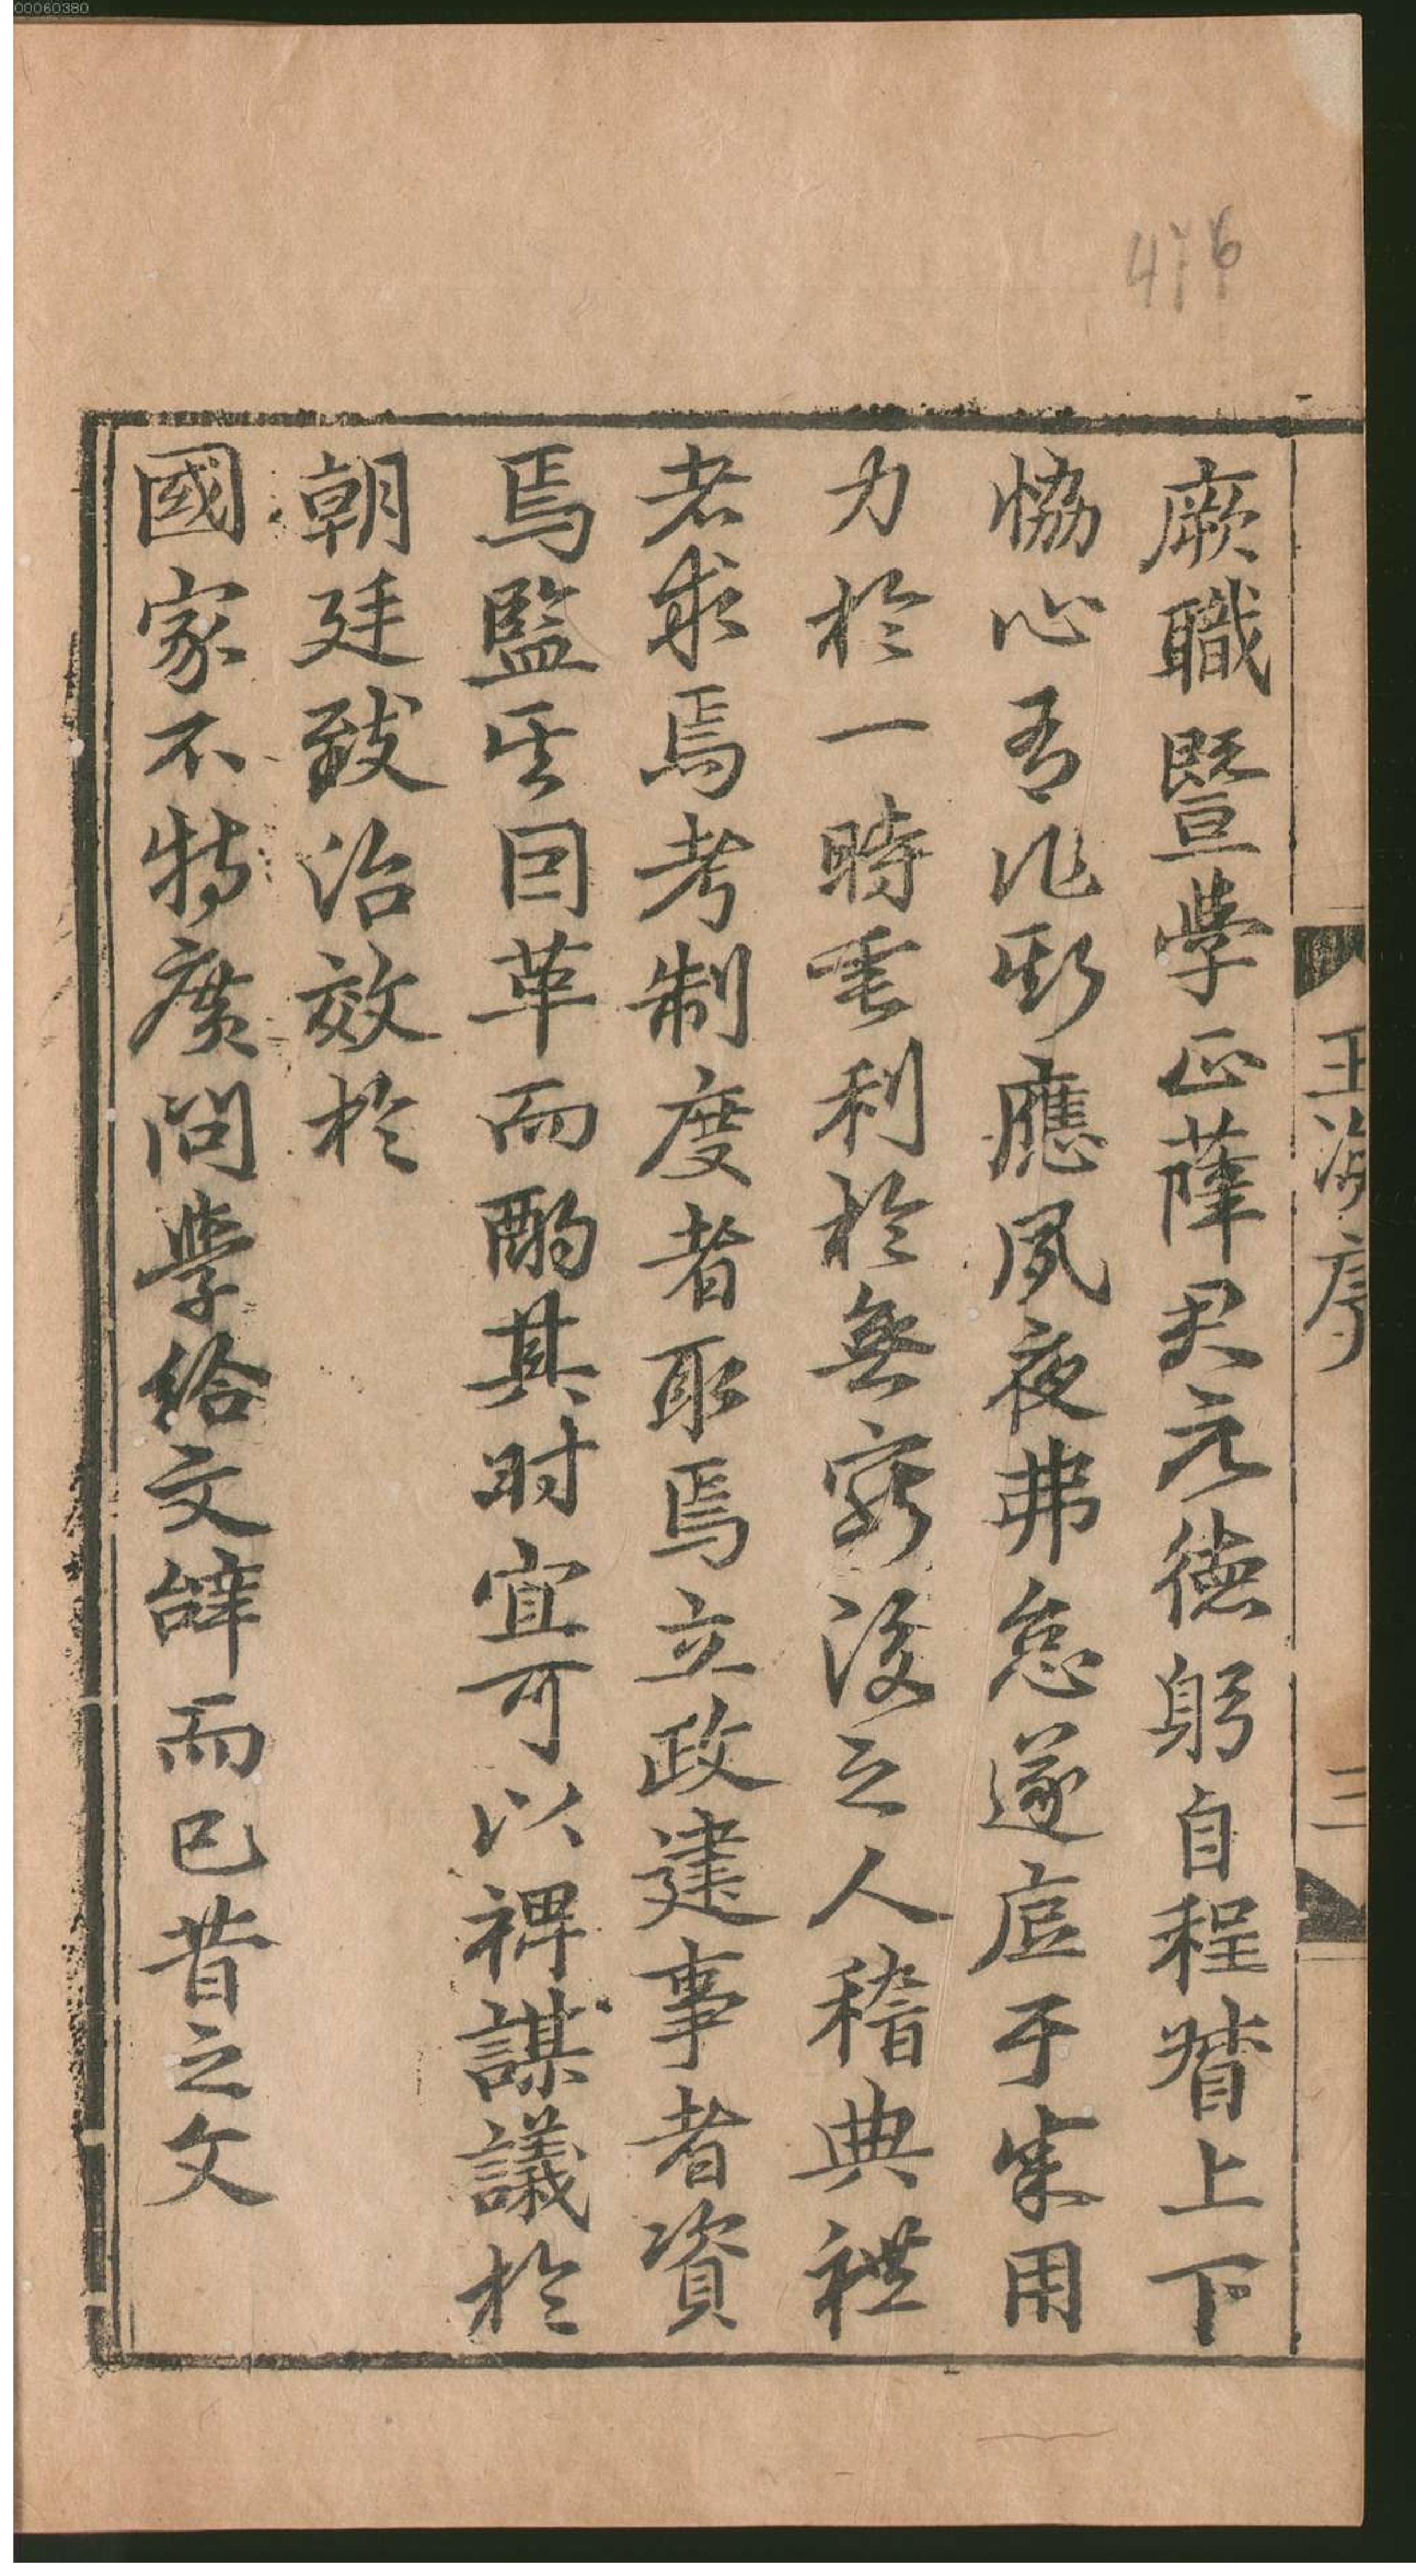 00060380
476
玉海序
三
厥職暨學正薛君元德躬自程督上下
恊心有作斯應夙夜弗怠遂底于案用
力於一時垂利於無窮後之人稽典禮
者求焉考制度者取焉立政建事者資
焉監其因革而酌其时宜可以裨謀議於
朝廷致治效於
國家不特廣問學給文辭而已昔之文